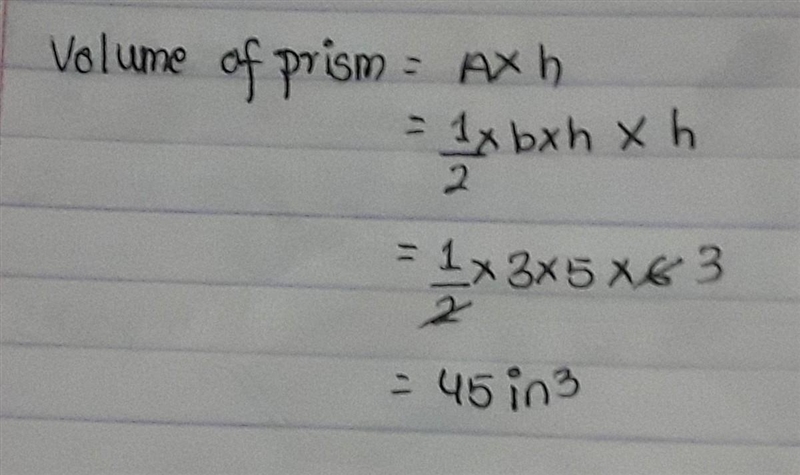 Volume of prism = A × h
= 1/2 × b × h × h
= 1/2 × 3 × 5 × 6 3
= 45 in³